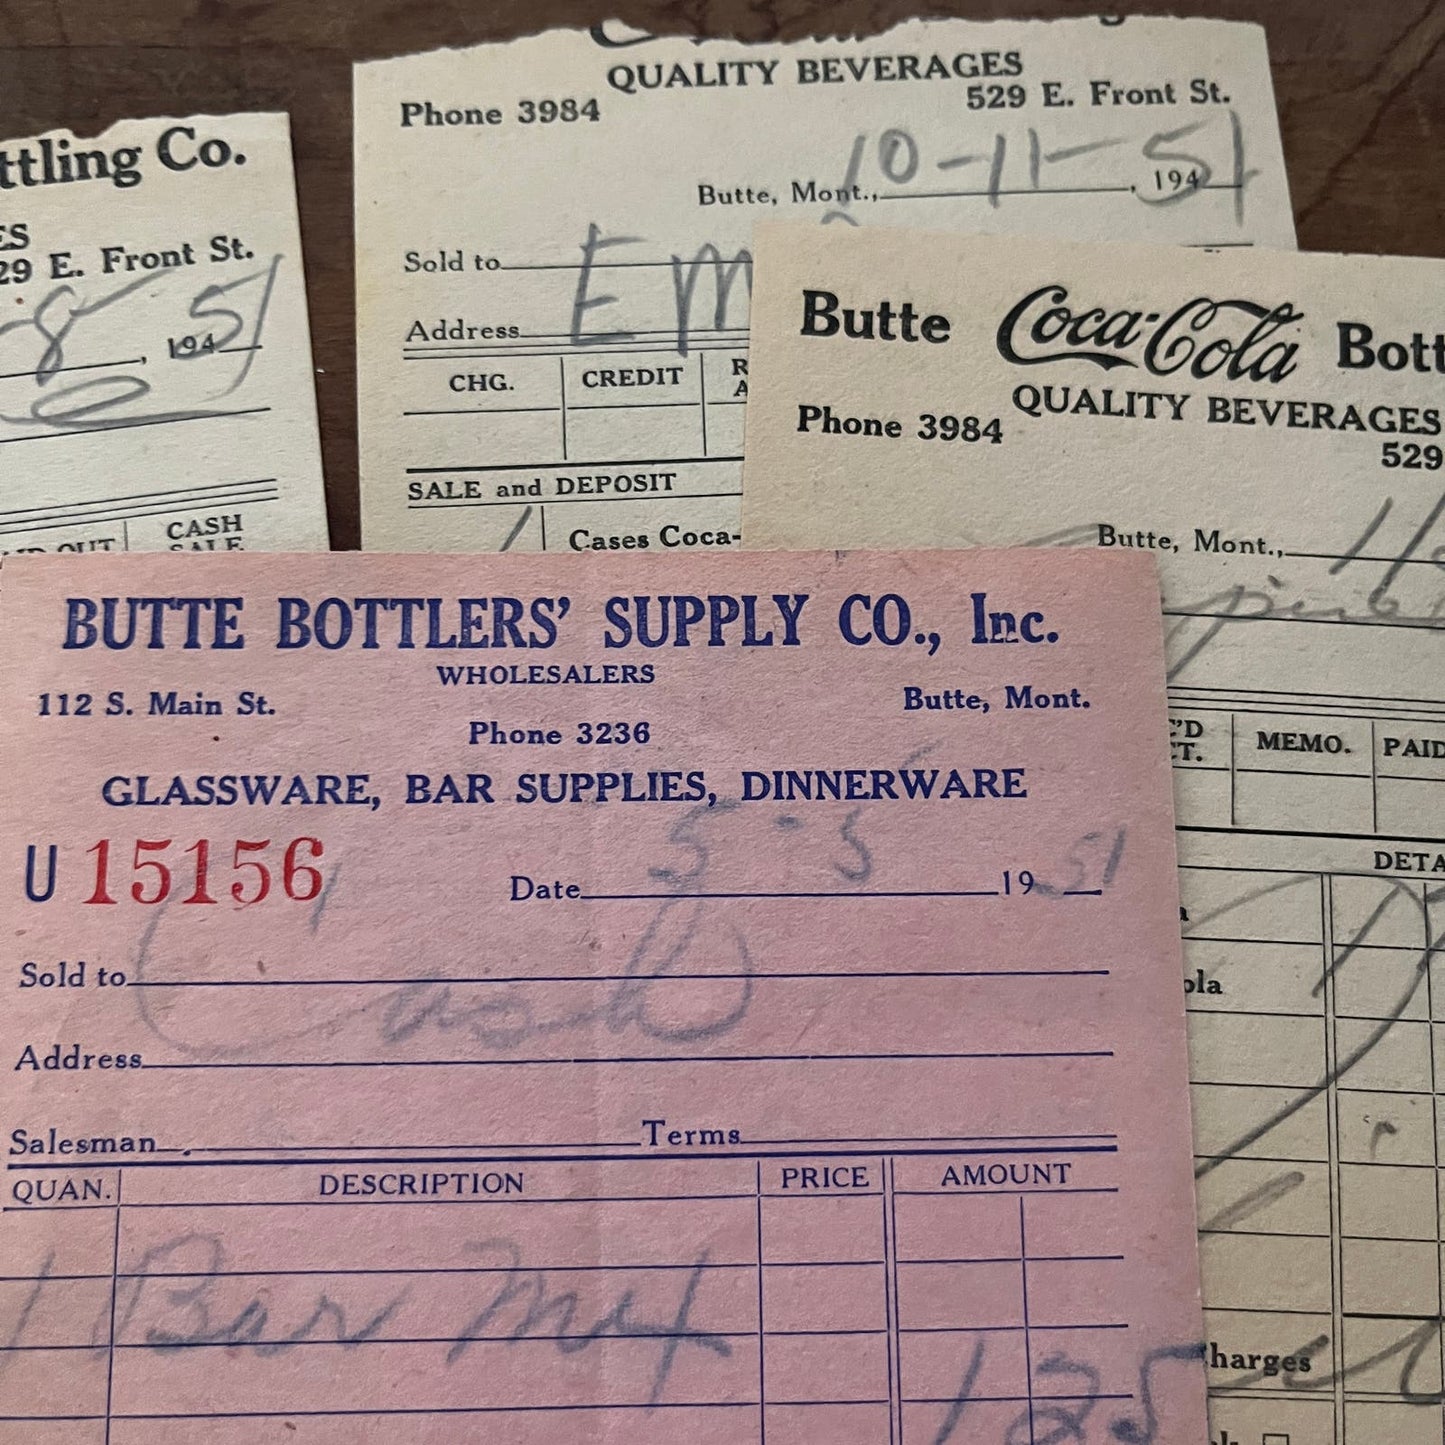 ttling Co.
ES
29 E. Front St.
-8 51
, 194
OUT
CASH
SALE
QUALITY BEVERAGES
Phone 3984
529 E. Front St.
10-11-51
Butte, Mont., , 194
Sold to
Em
Address
CHG. CREDIT R
A
SALE and DEPOSIT
1 Cases Coca-
Butte Coca-Cola Bott
QUALITY BEVERAGES
Phone 3984
529
Butte, Mont.,
'D
CT. MEMO. PAID
DETA
a
ola
harges
BUTTE BOTTLERS' SUPPLY CO., Inc.
WHOLESALERS
112 S. Main St. Butte, Mont.
Phone 3236
GLASSWARE, BAR SUPPLIES, DINNERWARE
U 15156
Date 5-5 19 51
Sold to Cash
Address
Salesman Terms
QUAN. DESCRIPTION PRICE AMOUNT
1 Bar Mix 1 25